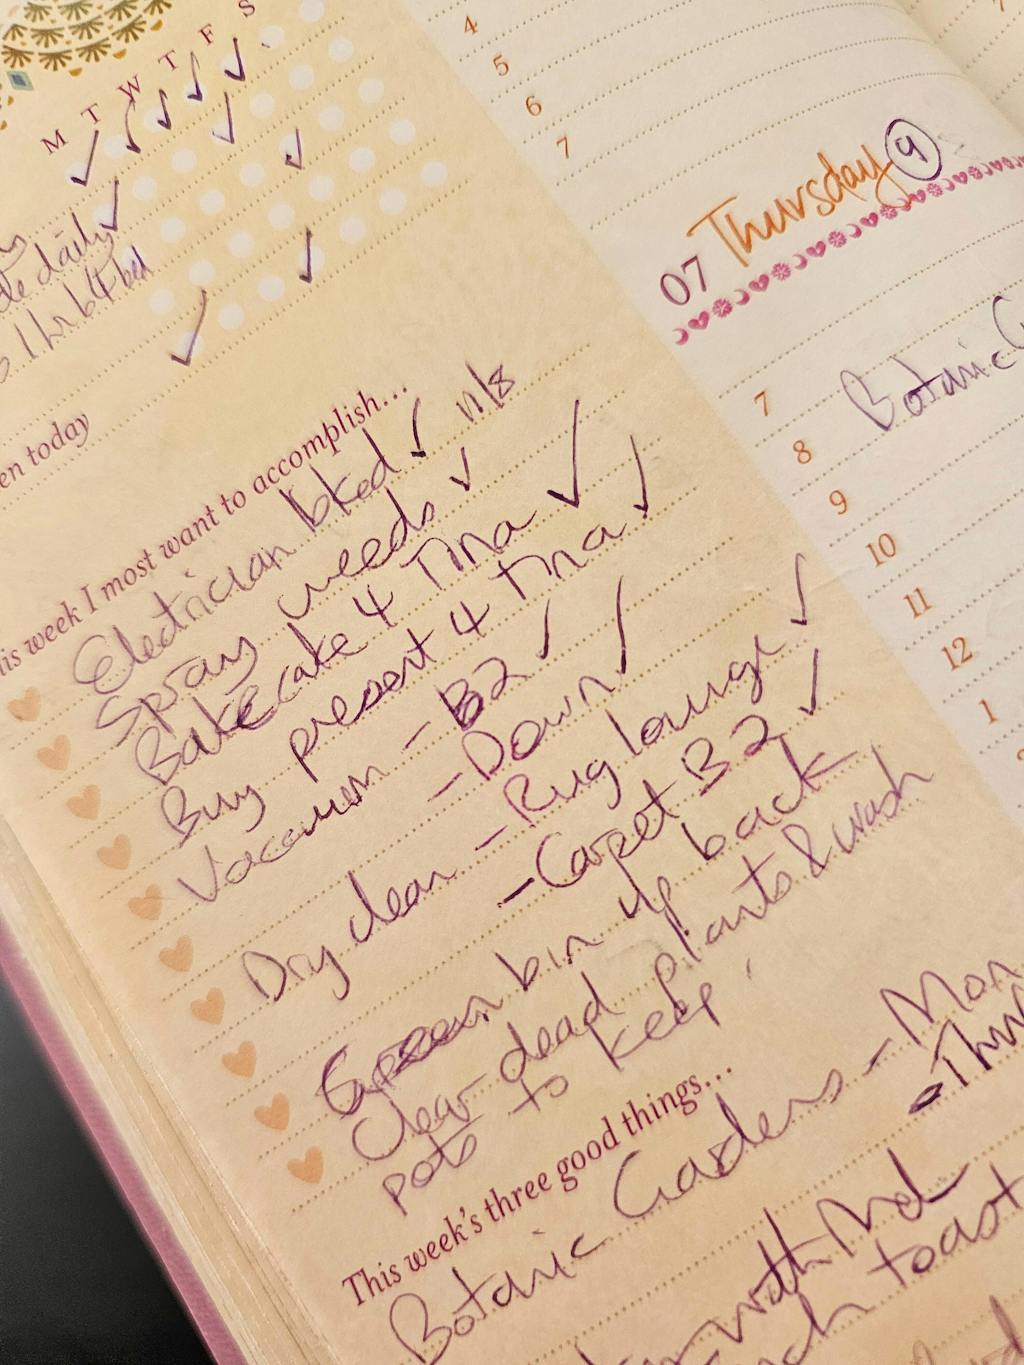 M T W T F S
daily
1 hr b4 bed
en today
his week I most want to accomplish...
Electrician bked ✓ 11/8
Spray weeds ✓
Bake cake 4 Tina ✓
Buy present 4 Tina ✓
Vacuum - B2 ✓
- Down ✓
Dry clean - Rug lounge ✓
- Carpet B2 ✓
Green bin up back
Clear dead plants & wash
pots to keep
This week's three good things...
Botanic Gardens - Mon
with Md
toast
4
5
6
7
07 Thursday 9
7
8 Botanic G
9
10
11
12
1